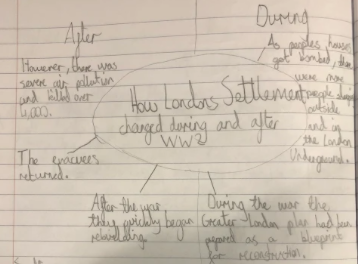 After
However, there was
severe air pollution
and killed over
4,000.
The evacuees
returned.
After the war
they quickly began
rebuilding.
How Londons Settlement
changed during and after
WW2
During
As peoples houses
got bombed, there
were more
people sleeping
outside
and in
the London
Underground.
During the war the
Greater London plan had been
prepared as a blueprint
for reconstruction.